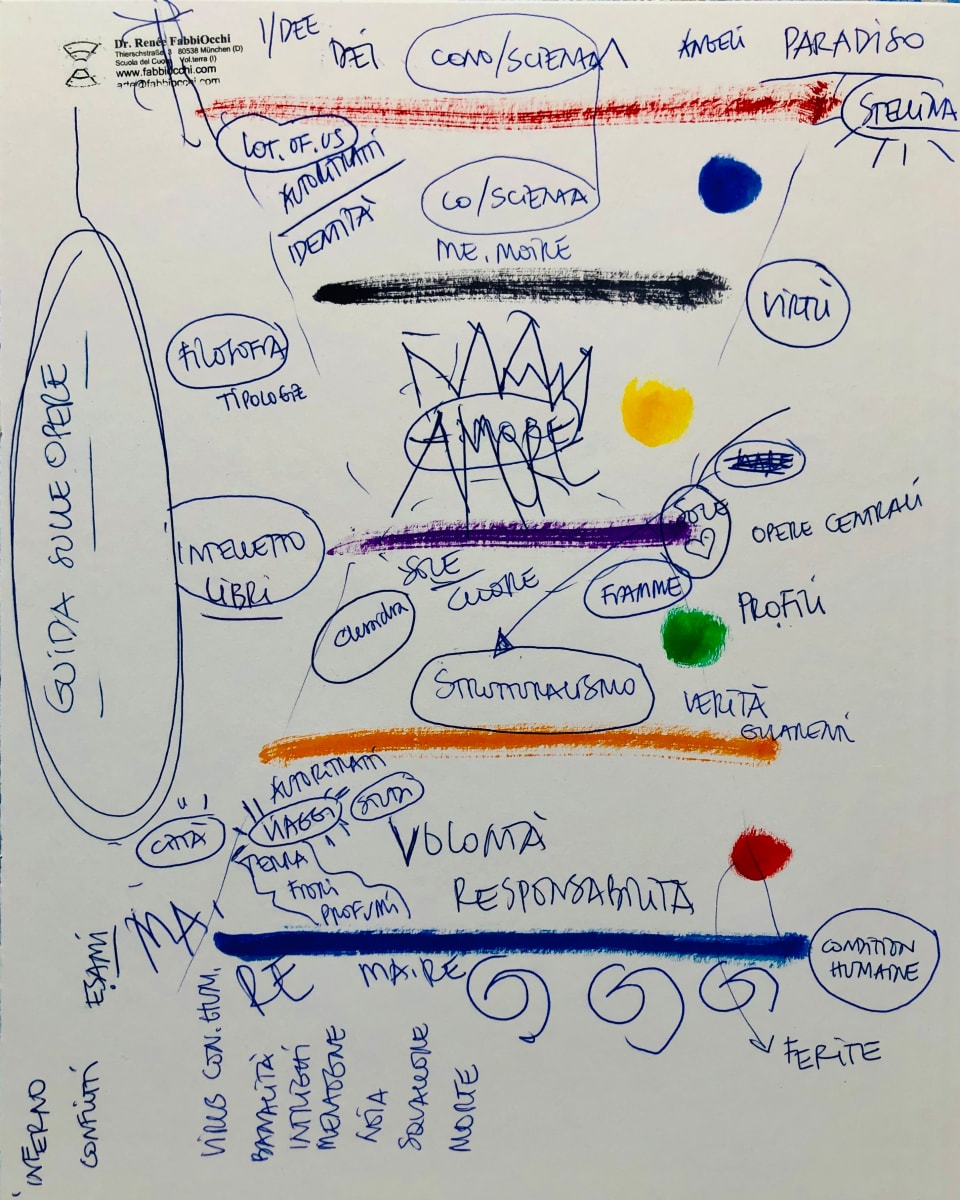 Dr. Renée FabbiOcchi
Thierschstraße 3 80538 München (D)
Scuola del Cuore Vol.terra (I)
www.fabbiocchi.com
arte@fabbiocchi.com
I/DEE
DEI
CONO/SCIENZA
ANGELI
PARADISO
STELLINA
LOT.OF.US
AUTORITRATTI
IDENTITÀ
CO/SCIENZA
ME.MOIRE
VIRTÙ
FILOSOFIA
TIPOLOGIE
AMORE
GUIDA SULLE OPERE
SOLE
OPERE CENTRALI
INTELLETTO
LIBRI
SOLE
CUORE
FIAMME
PROFILI
STRUTTURALISMO
VERITÀ
AUTORITRATTI
VIAGGI
STUDI
CITTÀ
VOLONTÀ
TERRA
FIORI
PROFUMI
RESPONSABILITÀ
MA
RE
MA.RE
CONDITION
HUMAINE
ESAMI
FERITE
INFERNO
CONFLITTI
VIRUS CON.HUM.
BANALITÀ
INTRIGHI
MENZOGNE
NOIA
SQUALLORE
MORTE